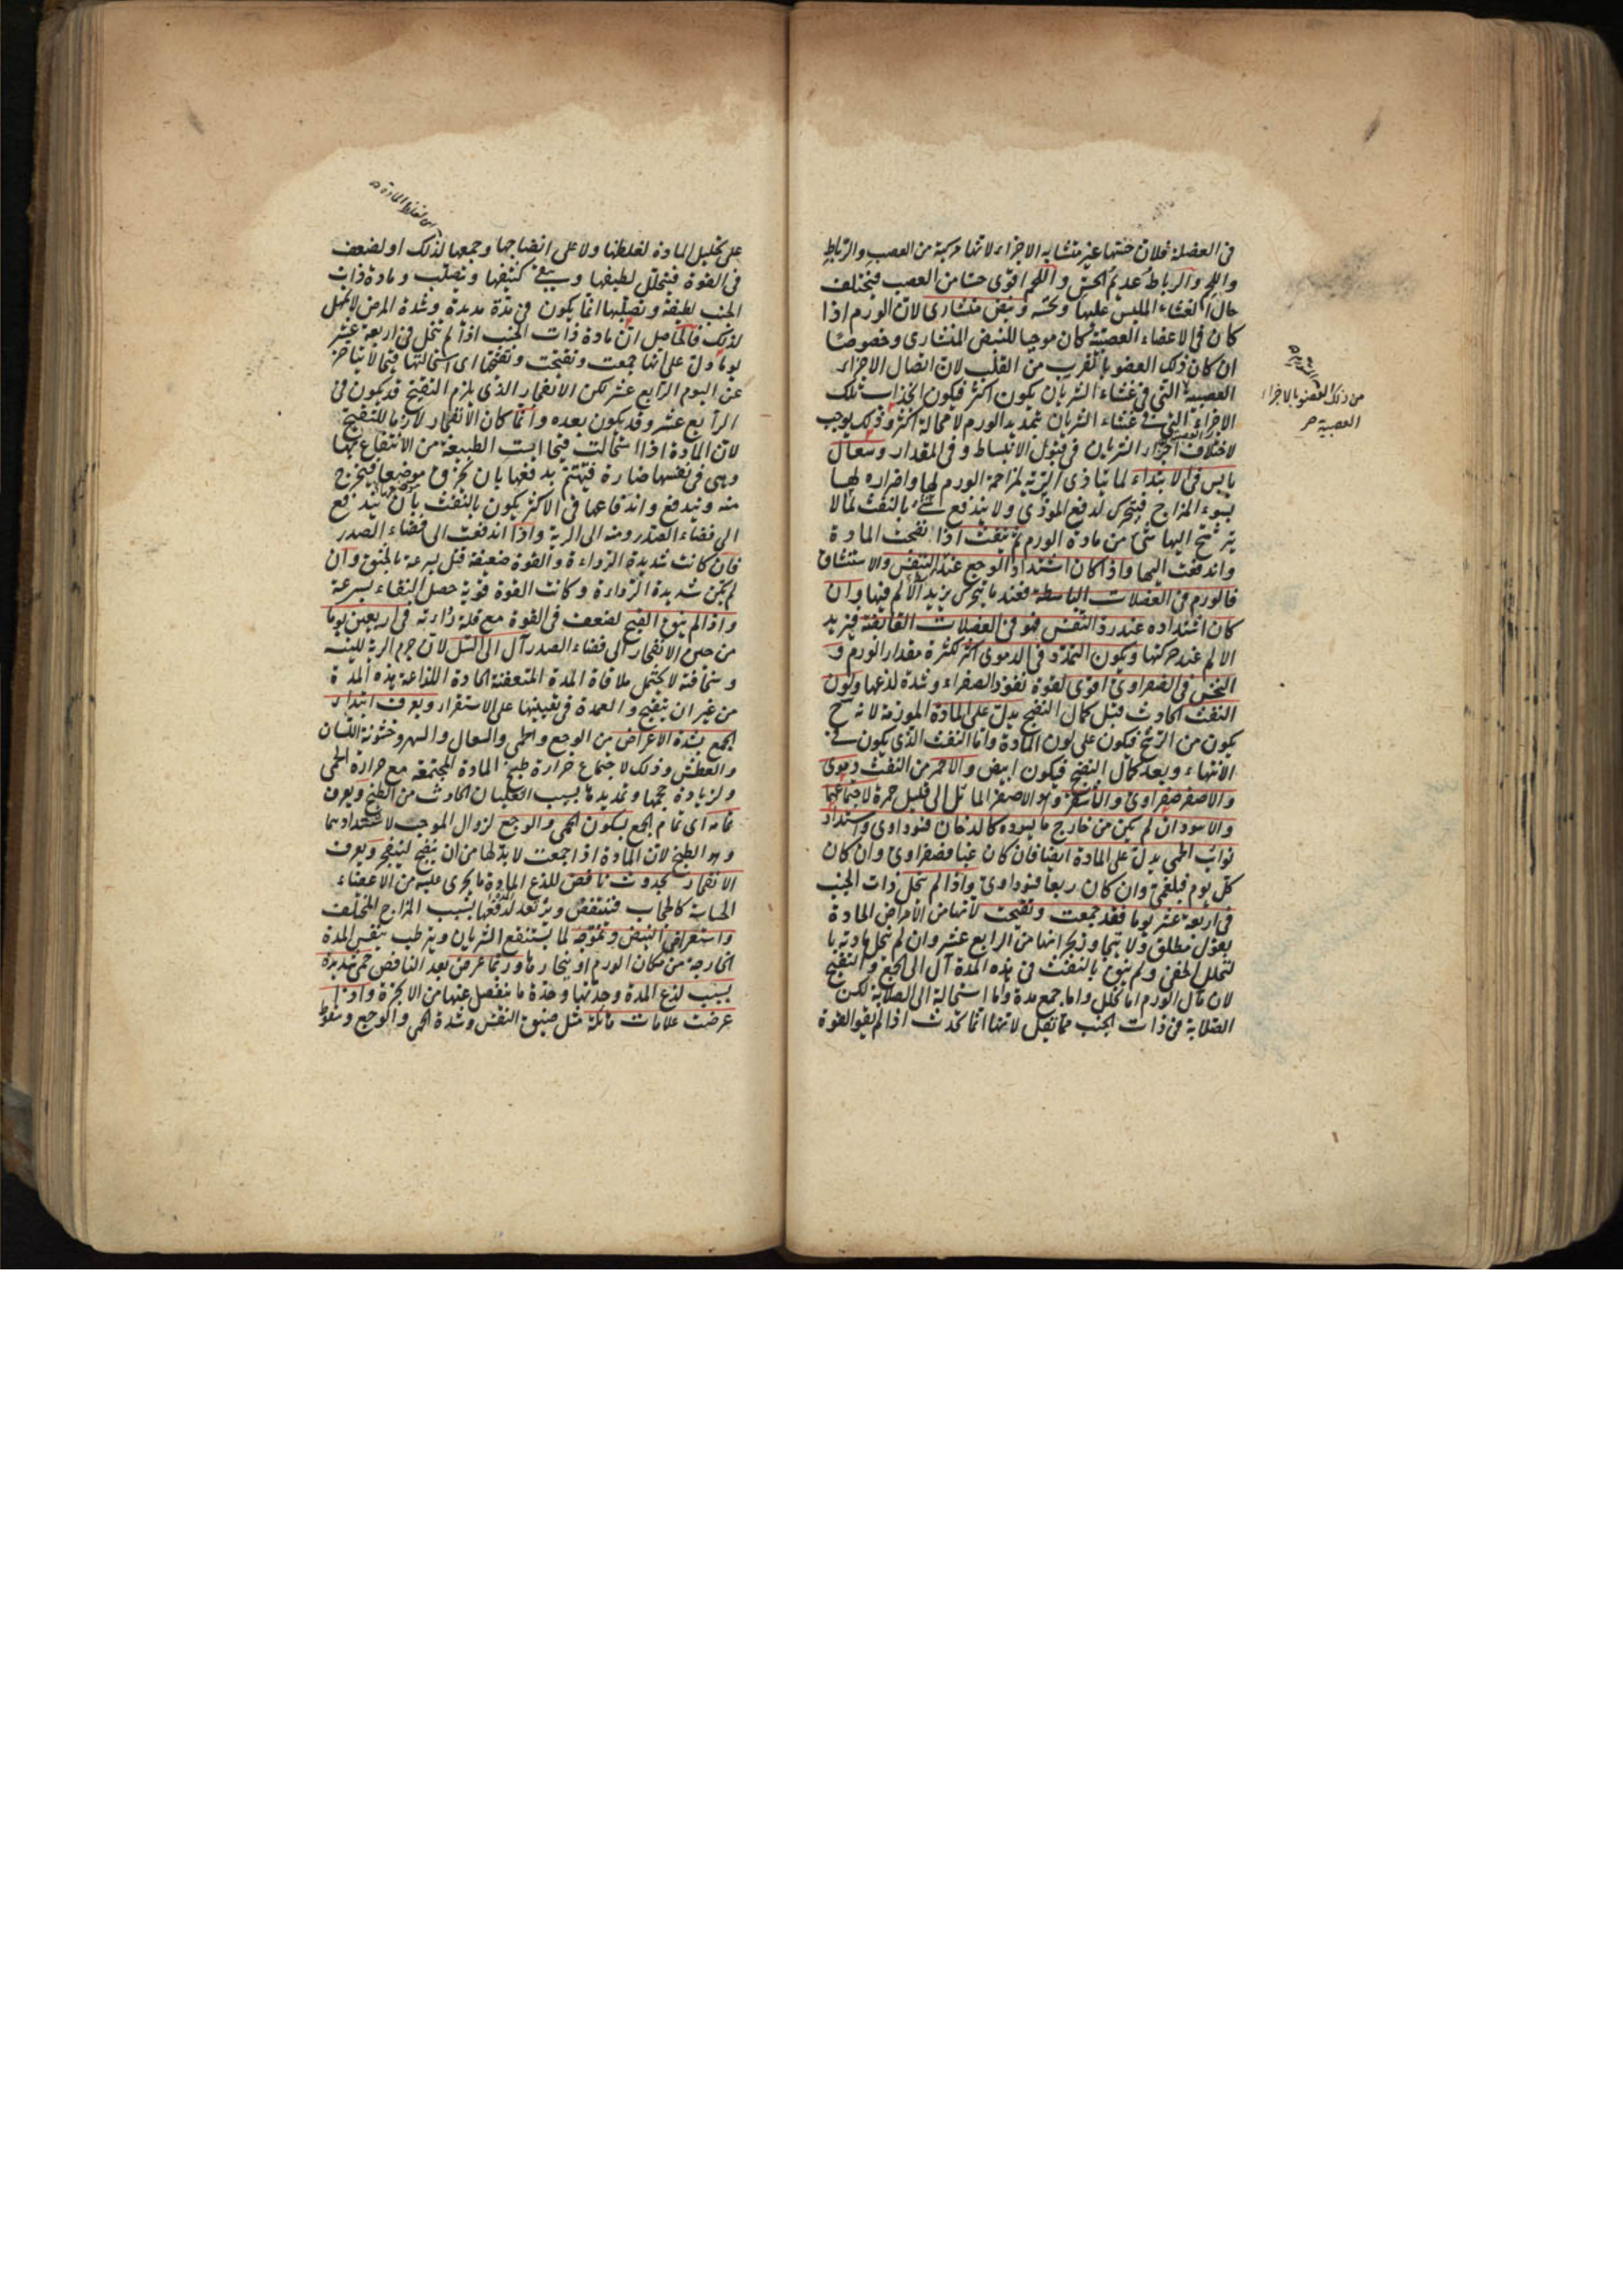 فى العضلة فلان حسّها غير متشابه الاجزاء لانها مركبة من العصب والرباط
واللحم والرباط عديم الحس واللحم اقوى حسّا من العصب فيختلف
حال الغشاء الملبس عليها وتحته ونبض منشارى لان الورم اذا
كان فى الاعضاء العصبيّة كان موجبا للنبض المنشارى وخصوصًا
ان كان ذلك العضو بالقرب من القلب لان اتصال الاجزاء
العصبية التى فى غشاء الشريان يكون اكثر فيكون انجذاب تلك
الاجزاء التى فى غشاء الشريان بتمديد الورم لا محالة اكثر وذلك يوجب
لاختلاف اجزاء الشريان فى قبول الانبساط وفى المقدار وسعال
يابس فى الابتداء لما يتاذى الرية لمزاحمة الورم لها واضراره لها
بسوء المزاج فيتحرك لدفع الموذى ولا يندفع شىء بالنفث لما لا
يترشح اليها شئ من مادة الورم ثم ينفث اذا نضجت المادة
واندفعت اليها واذا كان اشتداد الوجع عند التنفس والاستنشاق
فالورم فى العضلات الباسطة فعند ما يتحرك يزيد الالم فيها وان
كان اشتداده عند رد النفس فهو فى العضلات القابضة فيزيد
الالم عند حركتها ويكون التمدد فى الدموى اكثر لكثرة مقدار الورم و
النخس فى الصفراوى اقوى لقوة نفوذ الصفراء وشدة لذعها ولون
النفث الحادث قبل كمال النضج يدل على المادة المورمة لانه ح
يكون من الرشح فيكون على لون المادة واما النفث الذى يكون فى
الانتهاء وبعد كمال النضج فيكون ابيض والاحمر من النفث دموى
والاصفر صفراوى والاشقر وهو الاصفر المائل الى قليل حمرة لاجتماعهما
والاسود ان لم يكن من خارج ما يسوده كالدخان فسوداوى واشتداد
نوائب الحمى يدل على المادة ايضا فان كان غبا فصفراوى وان كان
كل يوم فبلغمى وان كان ربعا فسوداوى واذا لم تنحل ذات الجنب
فى اربعة عشر يوما فقد جمعت وتقيحت لانها من الامراض الحادة
بقول مطلق ولا يتجاوز بحرانها من الرابع عشر وان لم تنحل مادتها
لتحلل الخفى ولم ينق بالنفث فى هذه المدة آل الى الجمع والتقيح
لان مآل الورم اما تحلل واما جمع مدة واما استحالة الى الصلابة لكن
الصلابة فى ذات الجنب مما تقل لانها انما تحدث اذا لم يقو القوة
من ذلك العضو بالاجزاء
العصبية صح
على تحليل المادة لغلظها ولا على انضاجها وجمعها لذلك او لضعف
فى القوة فيتحلل لطيفها ويبقى كثيفها ويتصلب ومادة ذات
الجنب لطيفة وتصلبها انما يكون فى مدة مديدة وشدة المرض لا يمهل
لذلك فالحاصل ان مادة ذات الجنب اذا لم تنحل فى اربعة عشر
يوما دل على انها جمعت ونضجت وتقيحها اى استحالتها قيحا لا يتاخر
عن اليوم الرابع عشر لكن الانفجار الذى يلزم التقيح قد يكون فى
الرابع عشر وقد يكون بعده وانما كان الانفجار لازما للتقيح
لان المادة اذا استحالت قيحا ايست الطبيعة من الانتفاع بها
وهى فى نفسها ضارة فيهتم بدفعها بان يخرق موضعها فيخرج
منه ويندفع واندفاعها فى الاكثر يكون بالنفث بان يندفع
الى فضاء الصدر ومنه الى الرية واذا اندفعت الى فضاء الصدر
فان كانت شديدة الرداءة والقوة ضعيفة قتل بسرعة بالخنق وان
لم يكن شديدة الرداءة وكانت القوة قوية حصل النقاء بسرعة
واذا لم ينق القيح لضعف فى القوة مع قلة رداءته فى اربعين يوما
من حين الانفجار الى فضاء الصدر آل الى السل لان جرم الرية للينه
وسخافته لا يحتمل ملاقاة المدة المتعفنة الحادة اللذاعة هذه المدة
من غير ان يتقيح والعمدة فى تعيينها على الاستقراء ويعرف ابتداء
الجمع بشدة الاعراض من الوجع والحمى والسعال والسهر وخشونة اللسان
والعطش وذلك لاجتماع حرارة طبخ المادة المجتمعة مع حرارة الحمى
ولزيادة حجمها وتمديدها بسبب الغليان الحادث من الطبخ ويعرف
تمامه اى تمام الجمع بسكون الحمى والوجع لزوال الموجب لاشتدادهما
وهو الطبخ لان المادة اذا جمعت لا بد لها من ان ينضج لينفجر ويعرف
الانفجار بحدوث نافض للذع المادة ما يجرى عليه من الاعضاء
الحساسة كالحجاب فتنتفض ويرتعد لدفعها بسبب المزاج المختلف
واستعراض النبض وتموجه لما يستنقع الشريان ويترطب بنفس المدة
الخارجة من مكان الورم او ببخارها وربما عرض بعد النافض حمى شديدة
بسبب لذع المدة وحدتها وحدة ما ينفصل عنها من الابخرة واذا
عرضت علامات هائلة مثل ضيق النفس وشدة الحمى والوجع وسقوط